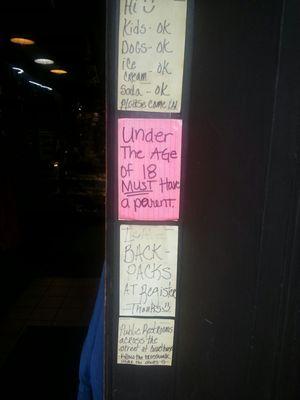 Hi
Kids- OK
DOGS- OK
ice
cream- OK
Soda- OK
Please come in
Under
The Age
of 18
MUST Have
a parent.
BACK-
PACKS
AT Register
Thanks
Public Restrooms
across the
street at
Follow the